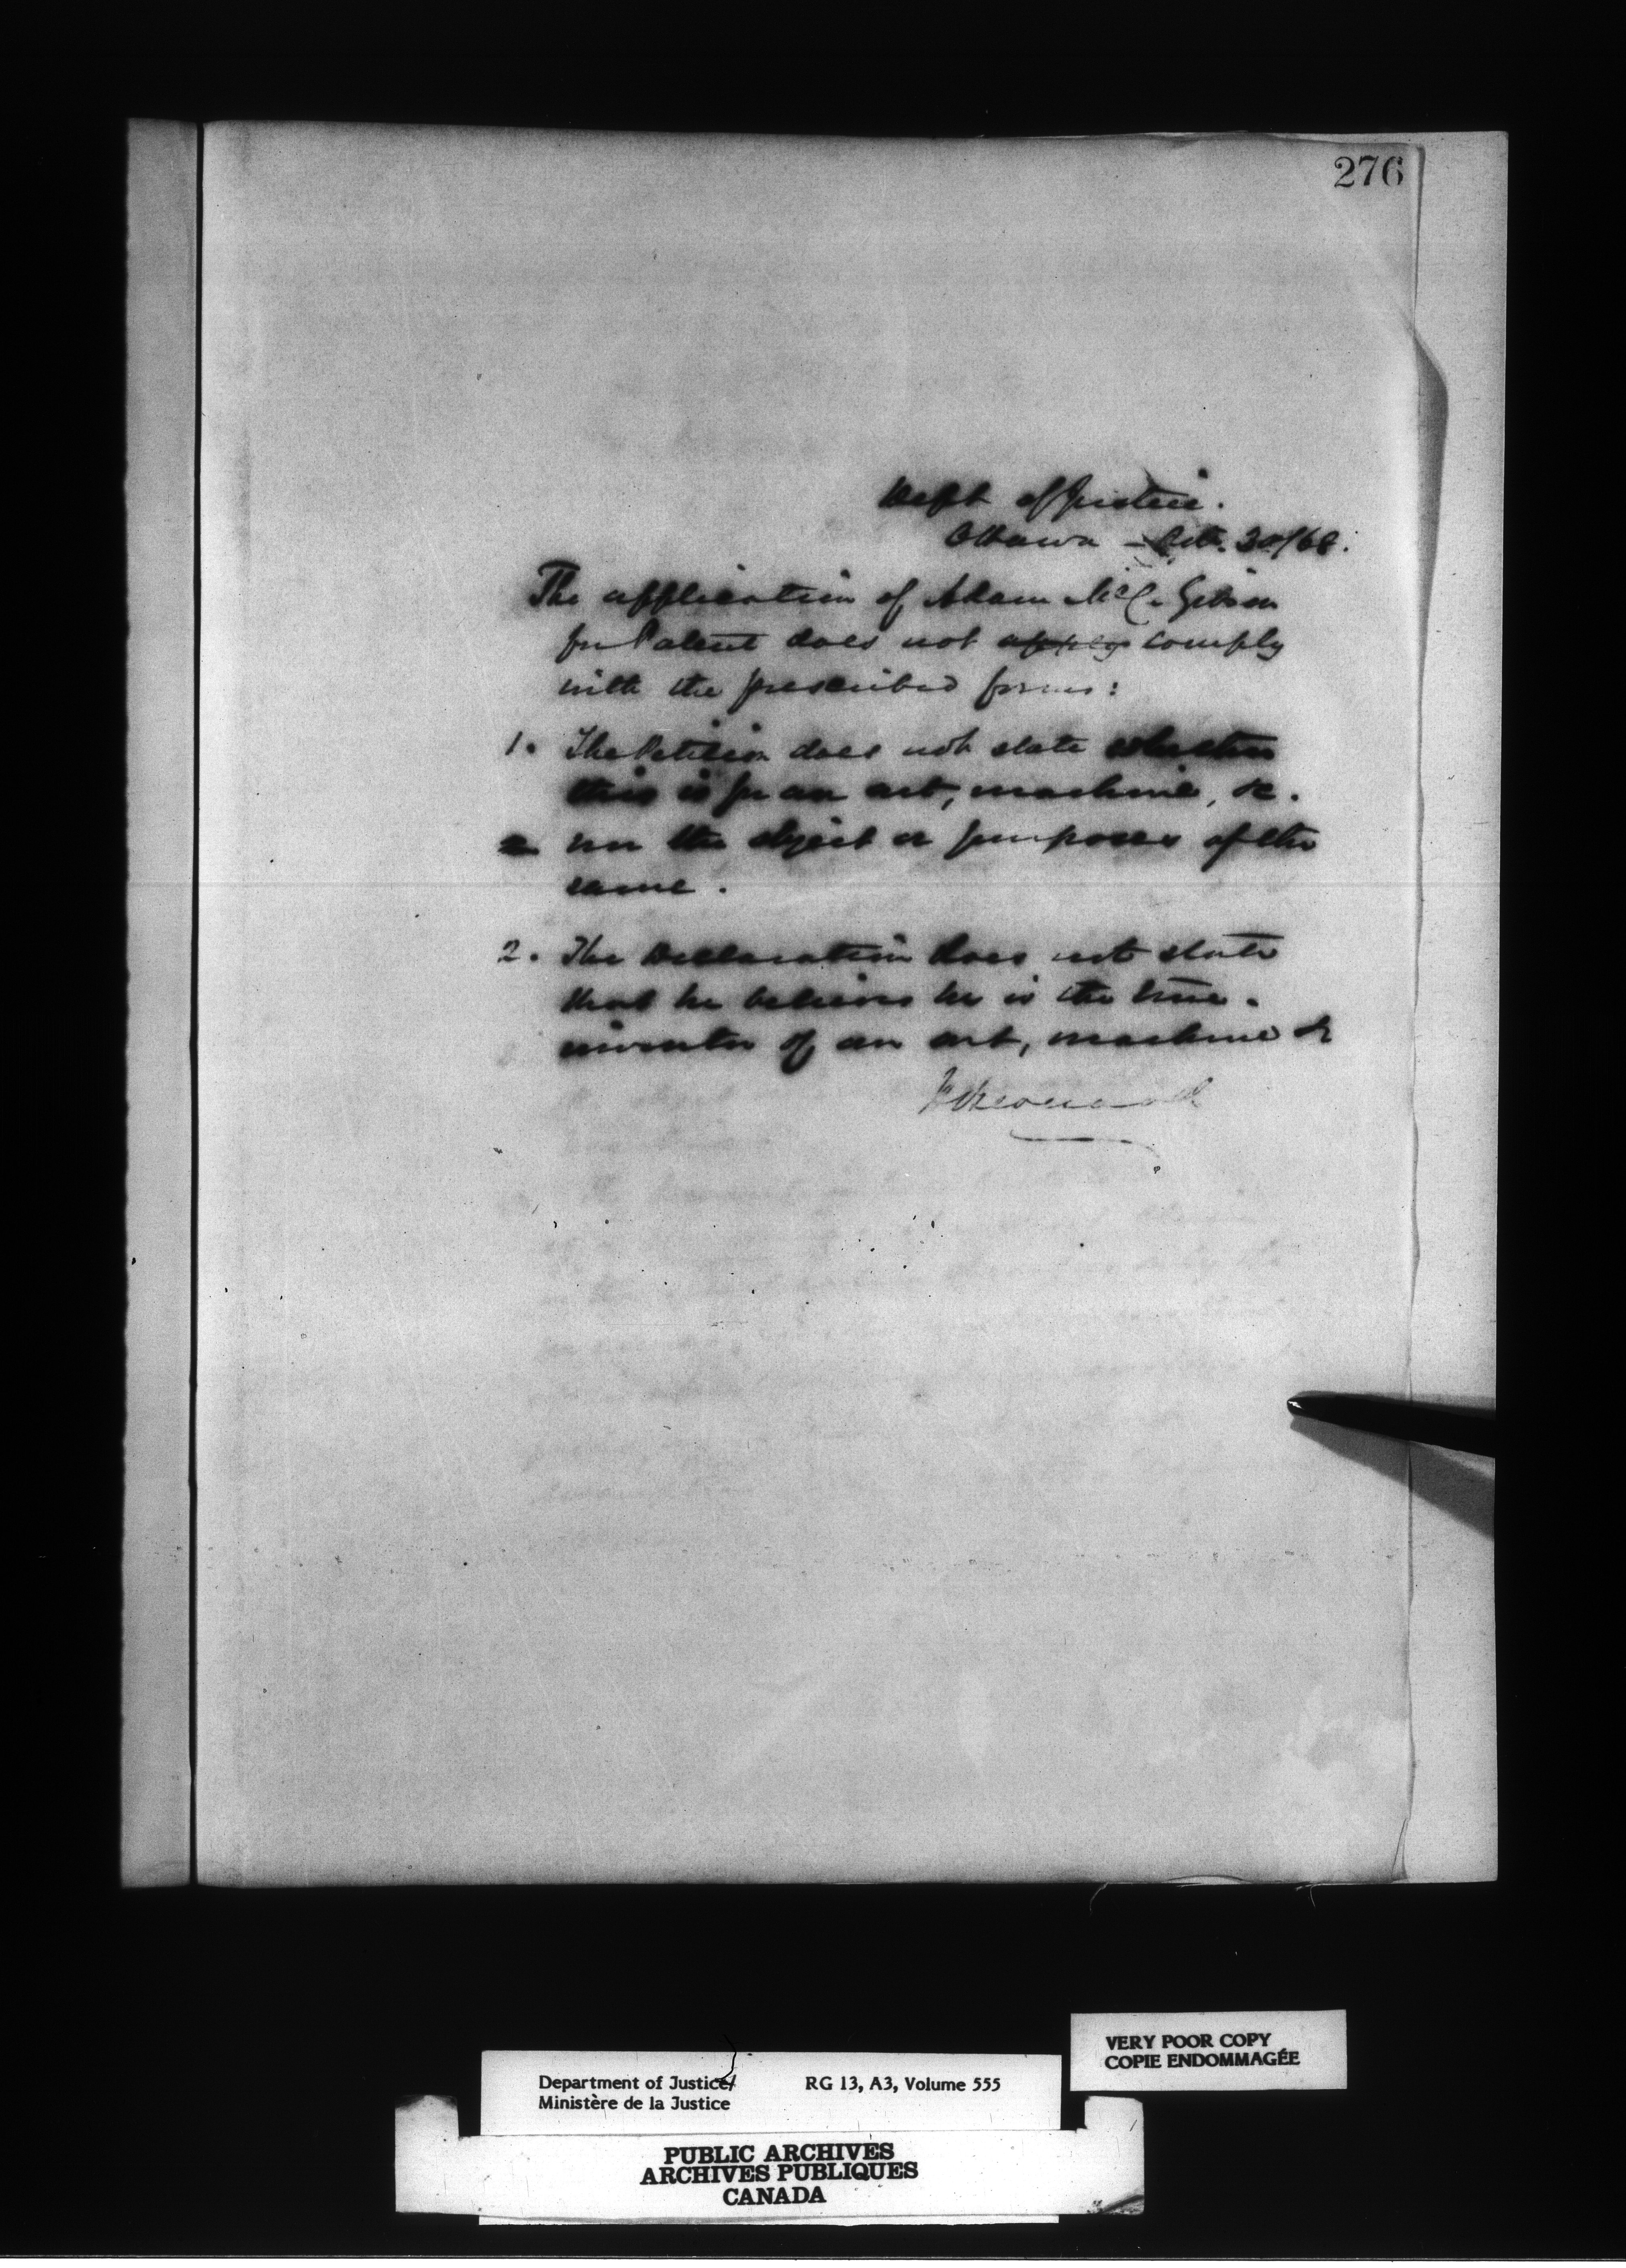 276
Dept of Justice.
Ottawa - Oct. 30/68.
The application of Adam McC. Gibson
for Patent does not apply comply
with the prescribed forms:
1. The Petition does not state whether
this is for an art, machine, &c.
nor the object or purposes of the
same.
2. The Declaration does not state
that he believes he is the true
inventor of an art, machine &c
VERY POOR COPY
COPIE ENDOMMAGÉE
Department of Justice/ RG 13, A3, Volume 555
Ministère de la Justice
PUBLIC ARCHIVES
ARCHIVES PUBLIQUES
CANADA